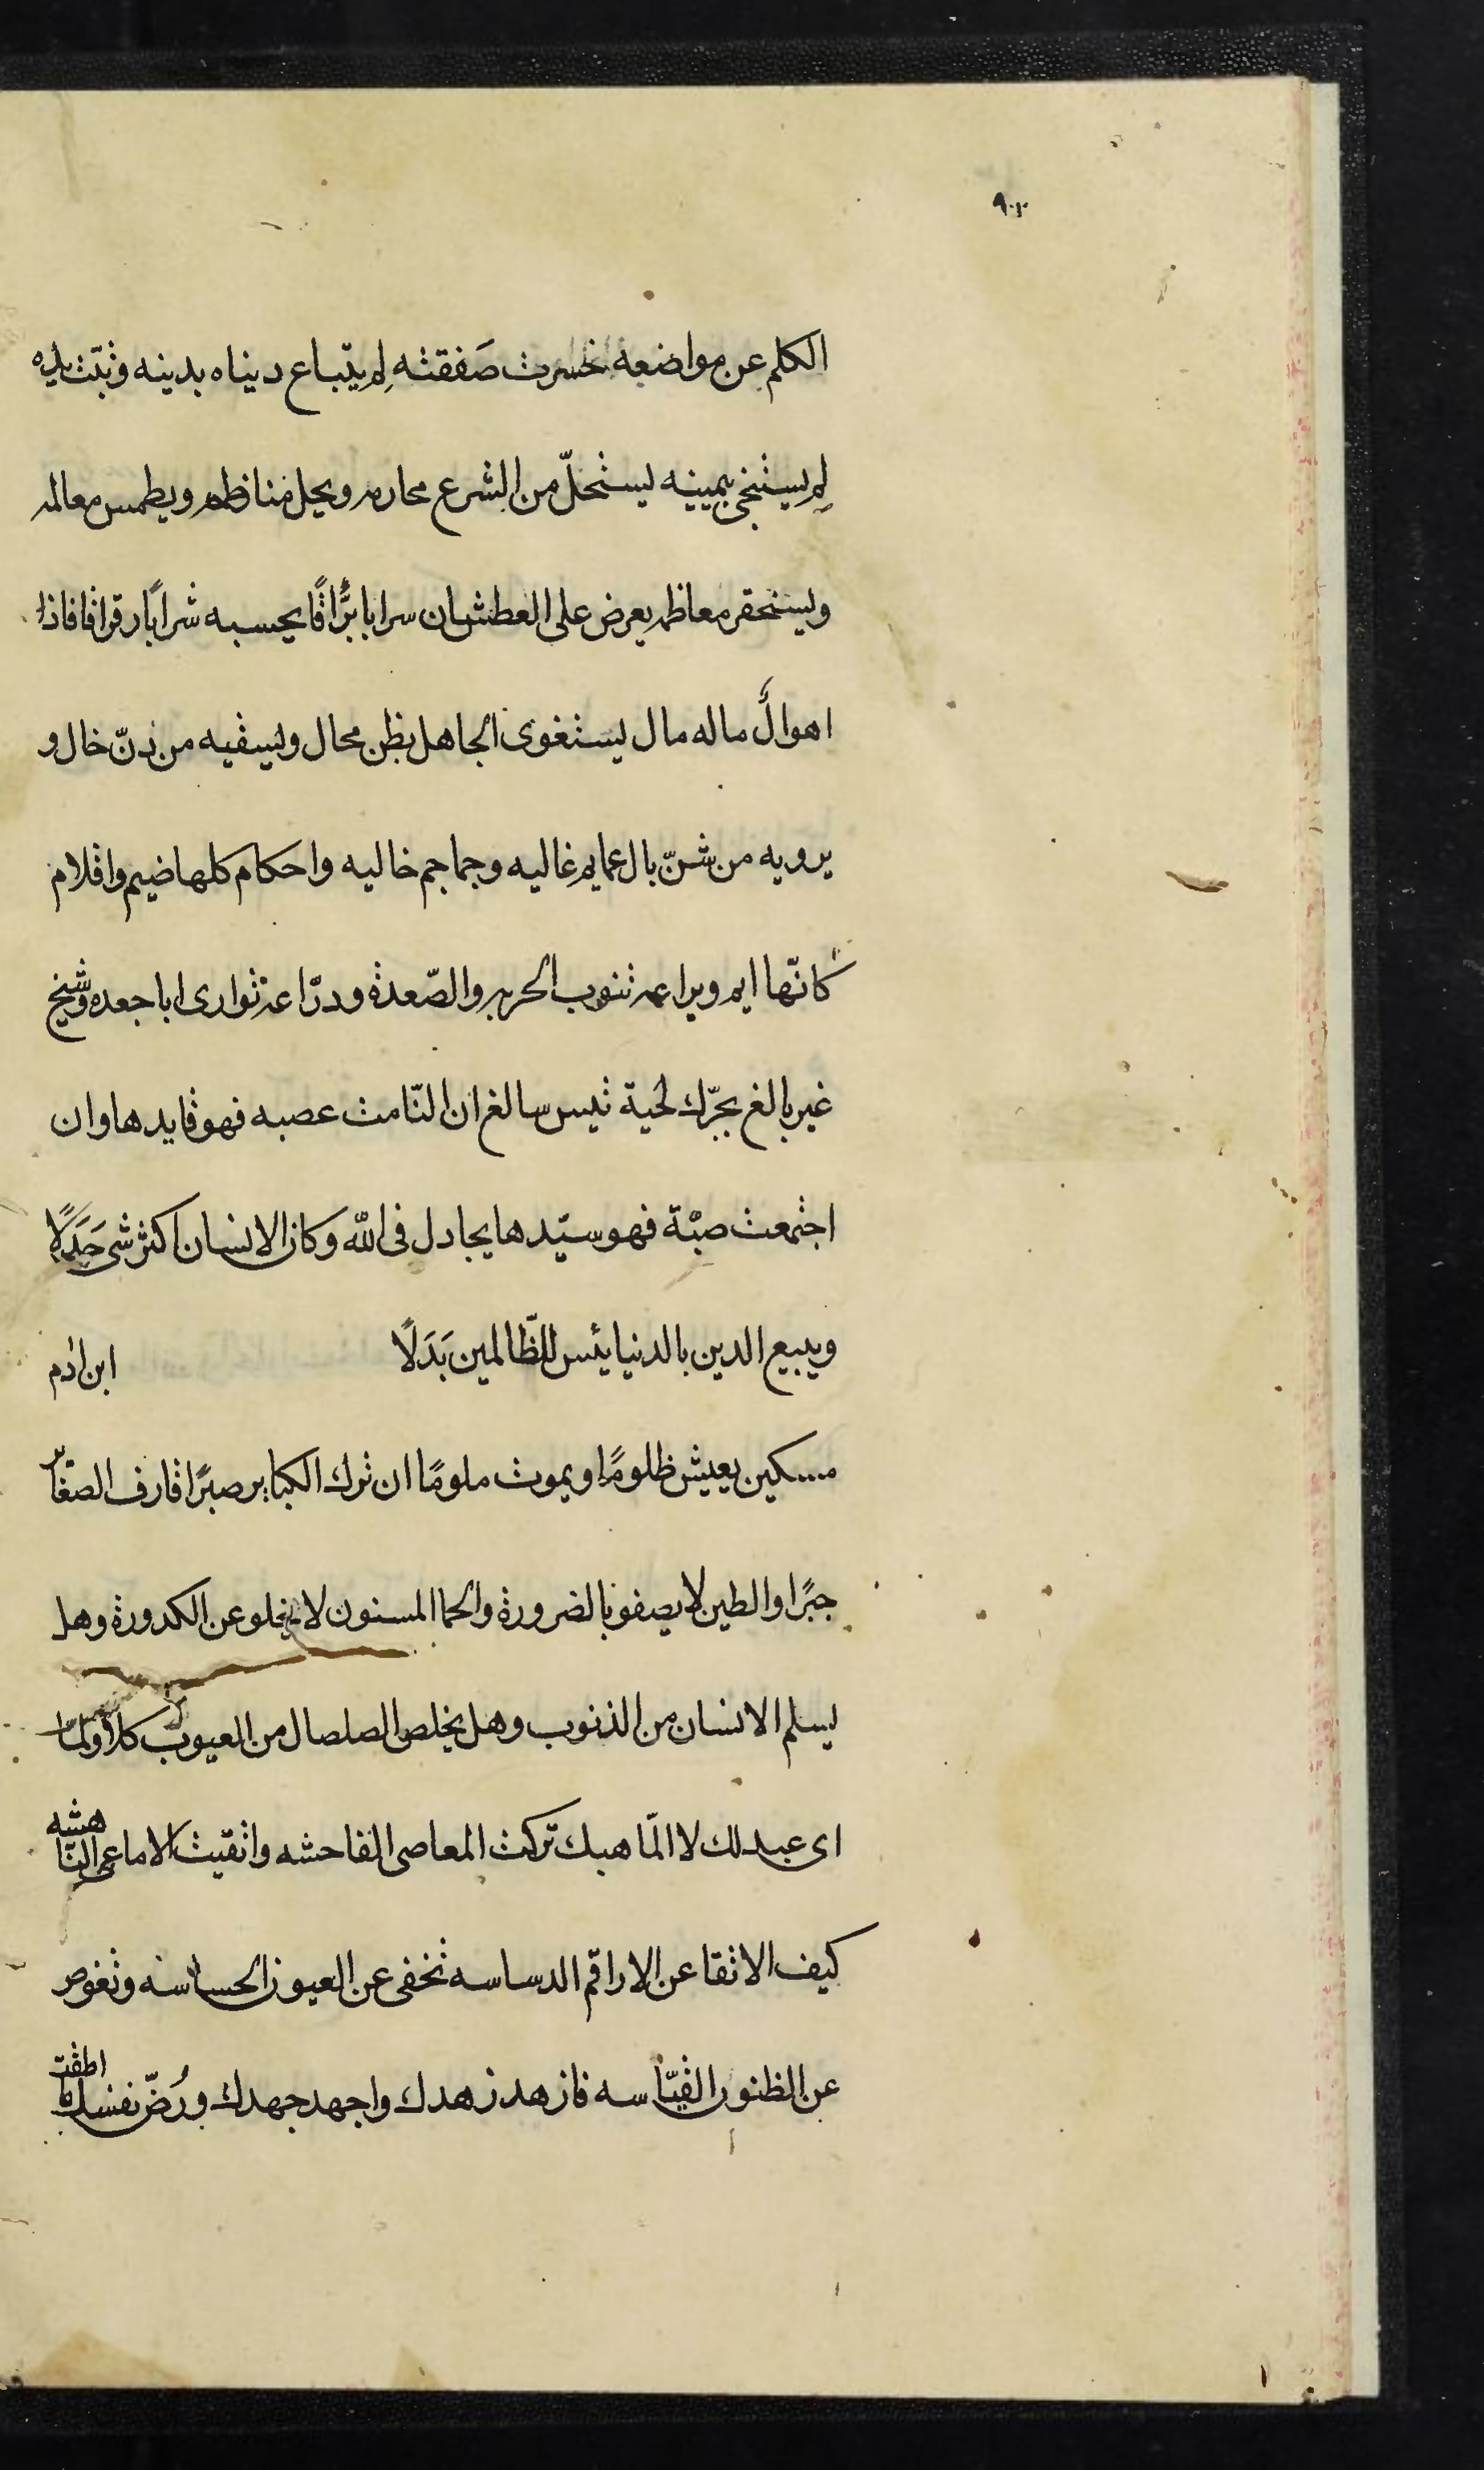 ٩٠٢
الكلم عن مواضعه خسرت صَفقته لِم يتّباع ديناه بدينه وثبّت يداه
لِم يستنجى بيمينه ليستحلّ من الشرع محارمه ويحل مناظمه ويطمس معالمه
وليستحقر معاظمه يعرض على العطشان سرابا برَّاقًا يحسبه شرابًا رقراقا فاذا
اهوالٌ ماله مال ليستغوى الجاهل بظن محال وليسقيه من دنّ خال و
يرويه من شنّ بال عمايم غاليه وجماجم خاليه واحكام كلها ضيم واقلام
كانّها ايم ويراعه تنوب الحربه والصّعدة ودرّاعة توارى ابا جعده وشيخ
غير بالغ يجرّك لحية تيس سالغ ان التامت عصبه فهو قايدها وان
اجتمعت صبّة فهو سيّدها يجادل فى الله وكان الانسان اكثر شى جَدَلًا
ويبيع الدين بالدنيا بئس للظّالمين بَدَلًا ابن ادم
مسكين يعيش ظلومًا ويموت ملومًا ان ترك الكباير صبرًا قارف الصغاير
جبرًا والطين لا يصفو بالضرورة والحما المسنون لا يخلو عن الكدورة وهل
يسلم الانسان من الذنوب وهل يخلص الصلصال من العيوب كلا ولمّا
اى عبد لك لا المّا هبك تركت المعاصى الفاحشه واتقيت الافاعى الناهشه
كيف الاتقا عن الاراقم الدساسه تخفى عن العيون الحساسه وتغوص
عن الظنون القيّاسه فازهد زهدك واجهد جهدك ورُضّ نفسك ما اطقت